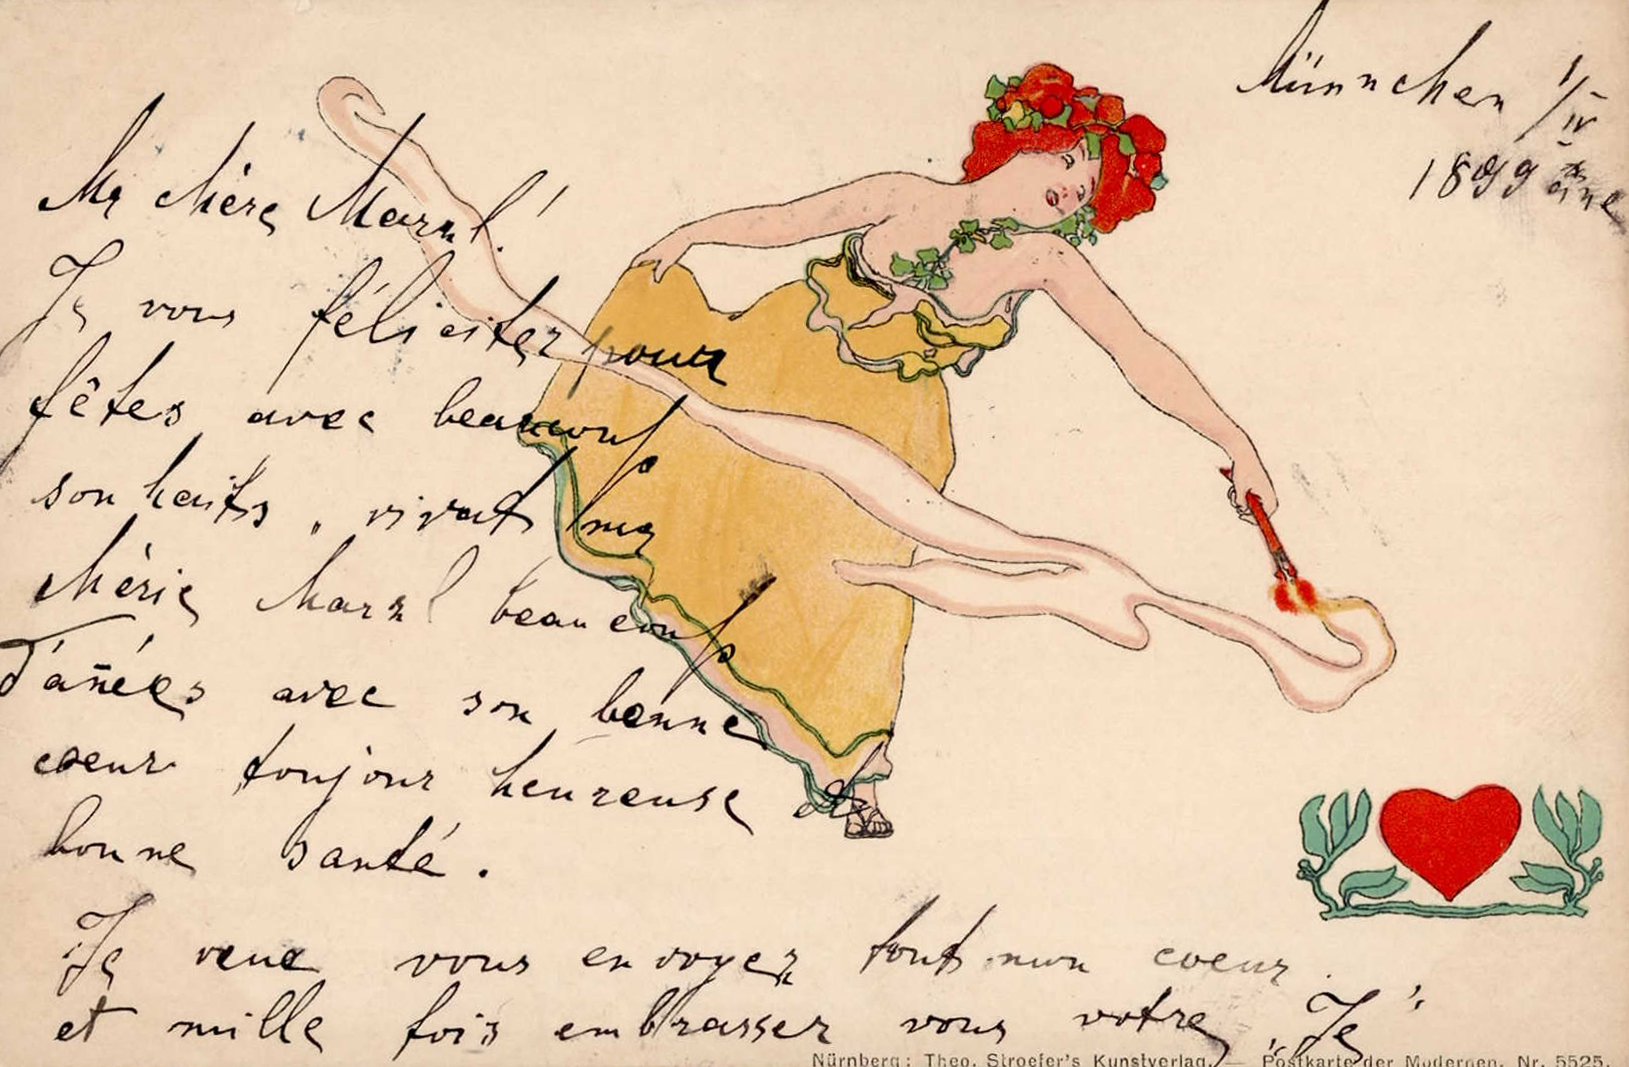 München 1/IV
1899
Ma chère Marzel!
Je vous féliciter pour
fêtes avec beaucoup
souhaits, vivat ma
chérie Marzel beaucoup
d'añées avec son bonne
coeur toujour heureuse et
bonne santé.
Je veux vous envoyer tout mon coeur.
et mille fois embrasser vous votre „Je”
Nürnberg: Theo. Stroefer's Kunstverlag. — Postkarte der Modernen. Nr. 5525.